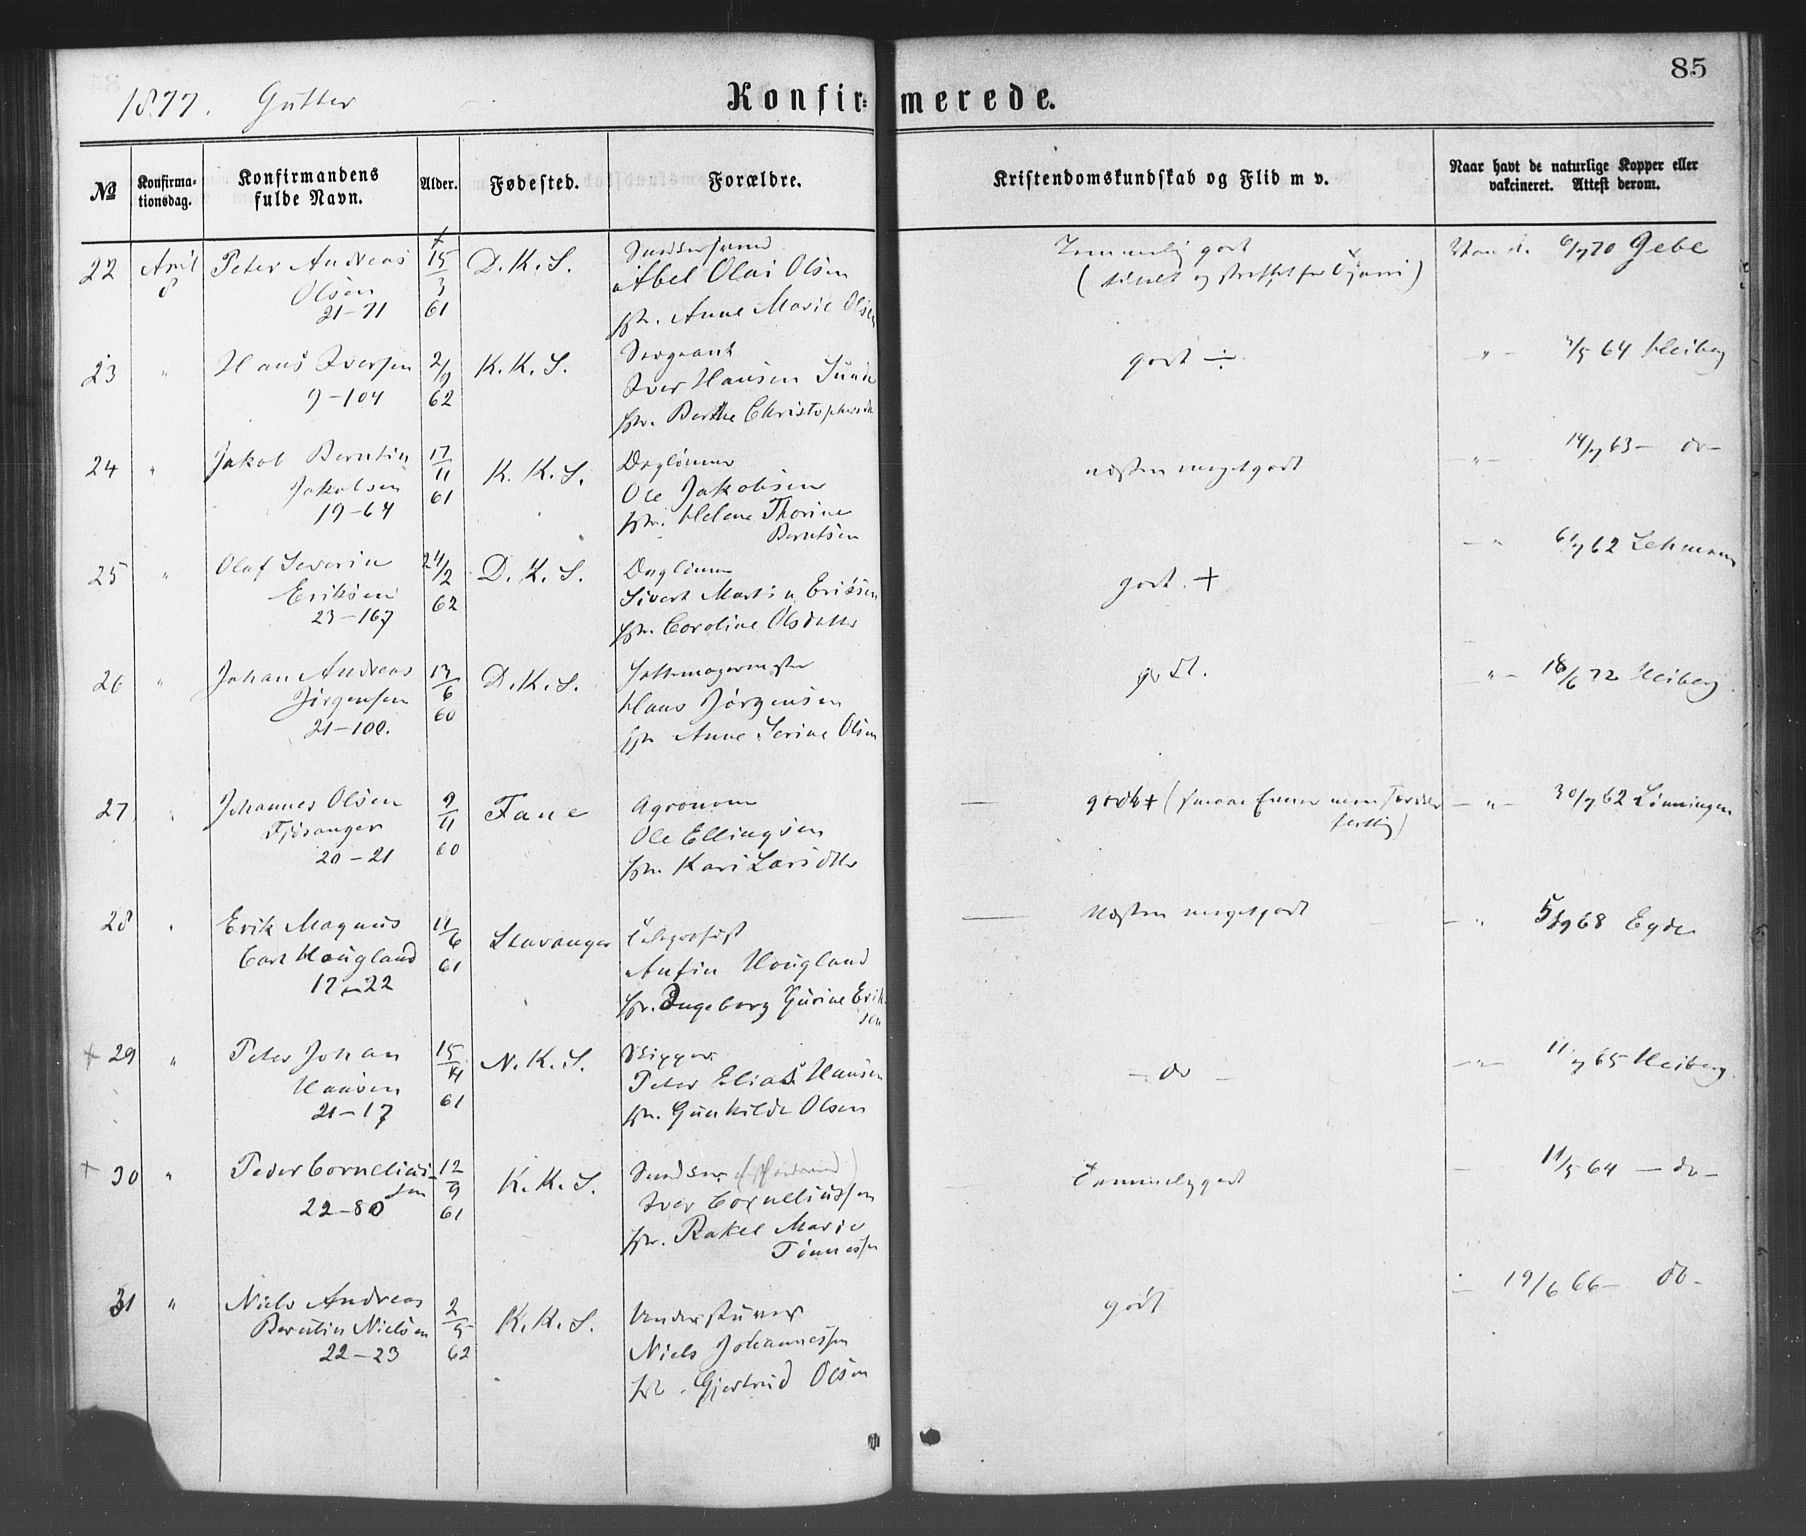 85
1877. Gutter
Konfir- merede.
No
Konfirma-
tionsdag.
Konfirmandens
fulde Navn.
Alder.
Fødested.
Forældre.
Kristendomskundskab og Flid m v.
Naar havt de naturlige Kopper eller
vakcineret. Attest derom.
22 April 8
Peter Andreas
Olsen
21-71
15/3 61
D.K.S.
Abel Olai Olsen
Anne Marie Olsen
Temmelig godt
6/7 70 Gebe
23 "
Hans Iversen
9-104
2/9 62
K.K.S.
Sergeant
Iver Hansen
Berthe
godt ÷
" 64 Heiberg
24 "
Jakob Berntin
Jakobsen
19-64
17/11 61
K.K.S.
Daglønner
Ole Jakobsen
Helene Thorine
Berntsen
næsten megetgodt
14/7 63 - do -
25 "
Olaf Severin
Eriksen
23-167
24/2 62
D.K.S.
Daglønner
Sivert Martin Eriksen
Caroline Olsdatter
godt. +
62 Lehmann
26 "
Johan Andreas
Jørgensen
21-100.
13/6 60
D.K.S.
Hans Jørgensen
Anne Serine Olsen
godt.
" 18/6 72 Heiberg
27 "
Johannes Olsen
Fjøsanger
20-21
9/11 60
Fane
Agronom
Ole Ellingsen
Kari Larsdtr
" 30/7 62 Lønningen
28 "
Erik Magnus
Carl Hougland
17-22
11/6 61
Stavanger
Telegrafist
Anfin Hougland
Ingeborg Gurine Erik-
sen
Næsten megetgodt
" 68 Egde
29 "
Peter Johan
Hansen
21-17
15/11 61
N.K.S.
Peter Elias Hansen
Gunhilde Olsen
- do -
" 65 Heiberg
30 "
Peder Cornelius-
sen
22-80
12/9 61
K.K.S.
Iver Corneliussen
Rakel Marie
Tønnessen
Temmeliggodt
11/5 64 - do -
31 "
Niels Andreas
Berntin Nielsen
22-23
2/5 62
K.K.S.
Understuver
Niels Johannessen
Gjertrud Olsen
godt
19/6 66 - do -